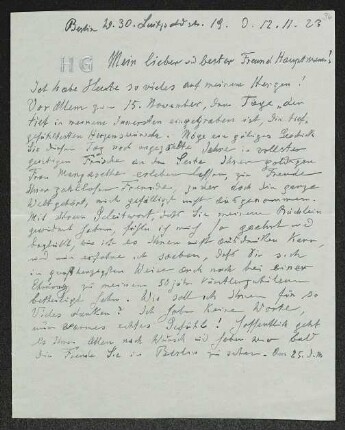 Berlin W. 30. Luitpoldstr. 19. D. 12. 11. 23
HG
Mein lieber und bester Freund Hauptmann!
Ich habe Heute so vieles auf meinem Herzen!
Vor Allem zum 15. November, dem Tage, der
tief in meinem Innersten eingegraben ist, die tief
gefühltesten Herzenswünsche. Möge ein gütiges Geschick
Sie diesen Tag noch ungezählte Jahre in vollster
geistigen Frische an der Seite Ihrer
Frau Margarethe erleben lassen, zur Freude
Ihrer zahllosen Freunde, zu der doch die ganze
Weltgehört, mich gefälligst nicht ausgenommen.
Mit Ihrem Geleitwort, das Sie meinem Büchlein
gewidmet haben, fühle ich mich so geehrt und
beglückt, wie ich es Ihnen nicht ausdrücken kann
und nun erfahre ich soeben, daß Sie sich
in Weise auch noch bei einer
Ehrung zu meinem 50 jähr. Künstlerjubiläum
betheiligt haben. Wie soll ich Ihnen für so
Vieles danken? Ich habe keine Worte,
nur warmes echtes Gefühl! Hoffentlich geht
es Ihnen Allen nach Wunsch und haben wir bald
die Freude Sie in Berlin zu sehen. Am 25. d. M.